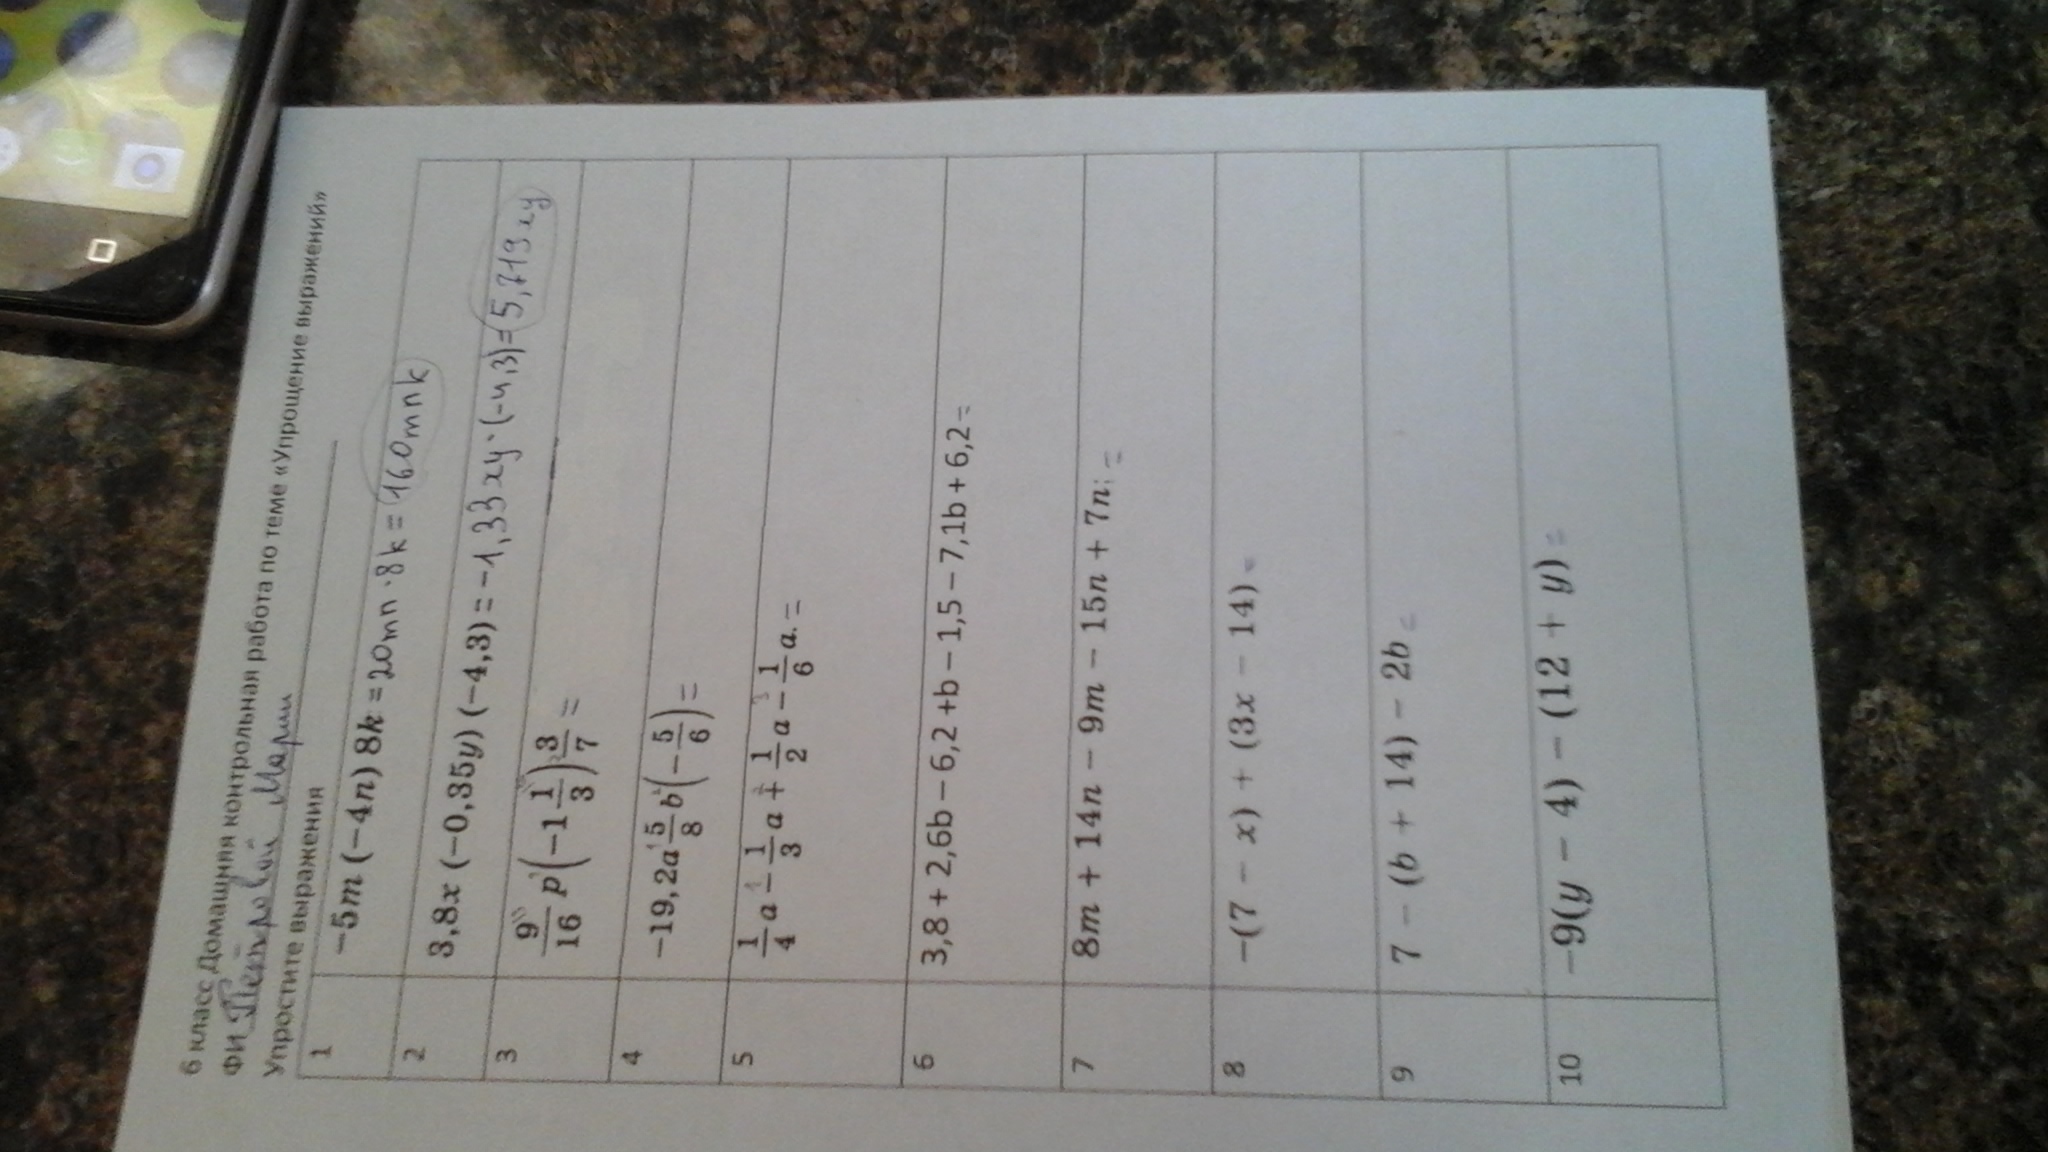 6 класс Домашняя контрольная работа по теме «Упрощение выражений»
ФИ Петровой Марии
Упростите выражения
1 −5m (−4n) 8k = 20mn · 8k = 160mnk
2 3,8x (−0,35y) (−4,3) = −1,33xy · (−4,3) = 5,719xy
3 9/16 p (−1 1/3) 3/7 =
4 −19,2a 5/8 b (−5/6) =
5 1/4 a − 1/3 a + 1/2 a − 1/6 a. =
6 3,8 + 2,6b − 6,2 +b − 1,5 − 7,1b + 6,2 =
7 8m + 14n − 9m − 15n + 7n; =
8 −(7 − x) + (3x − 14) =
9 7 − (b + 14) − 2b =
10 −9(y − 4) − (12 + y) =